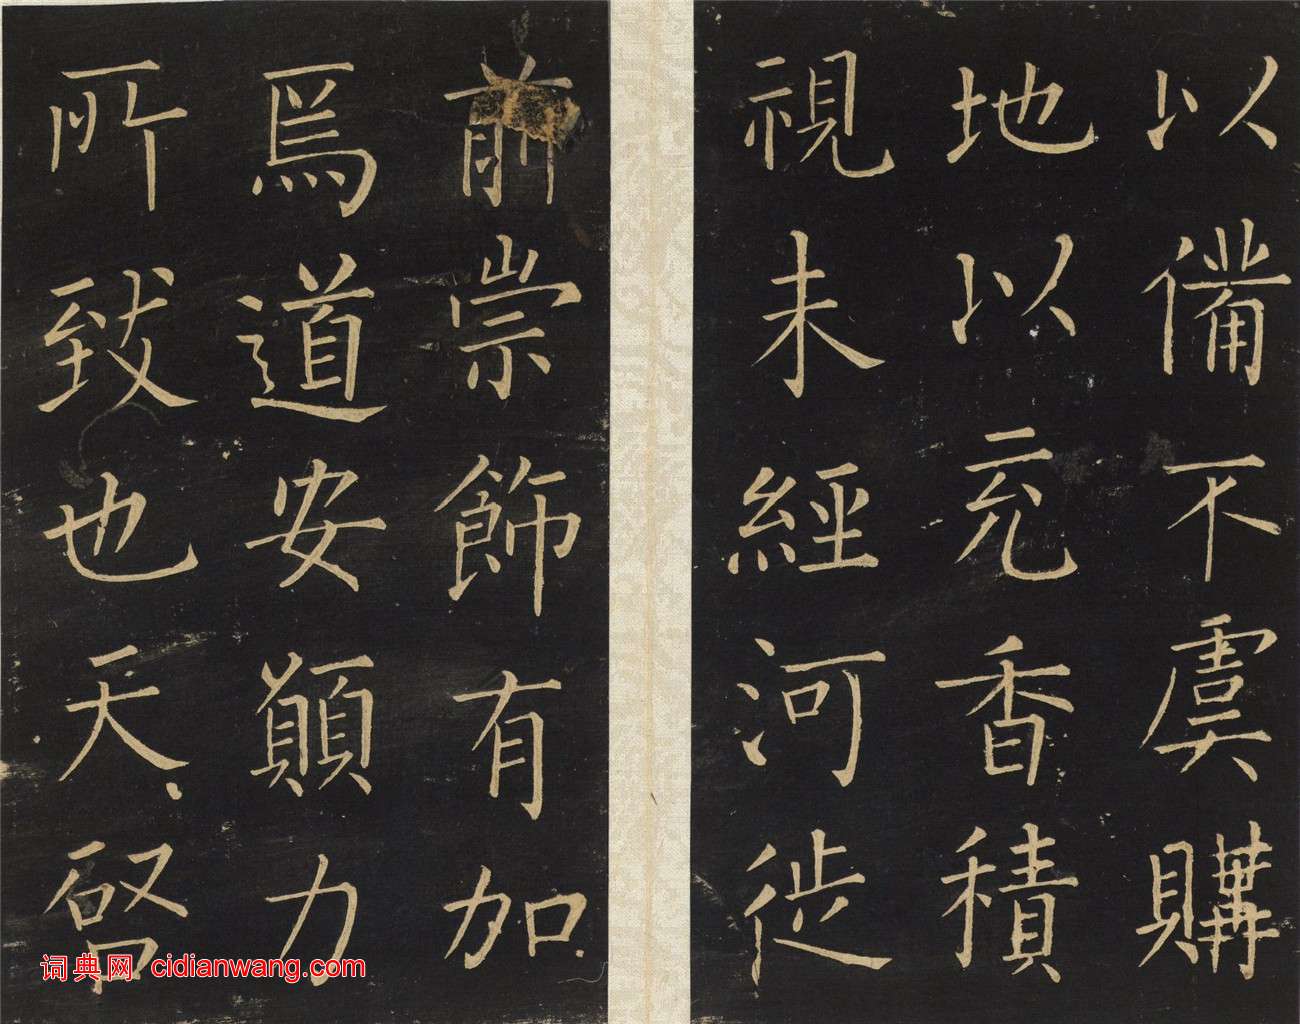 以備不虞購
地以充香積
視未經河徙
前崇飾有加
焉道安顛力
所致也天啓
词典网 cidianwang.com